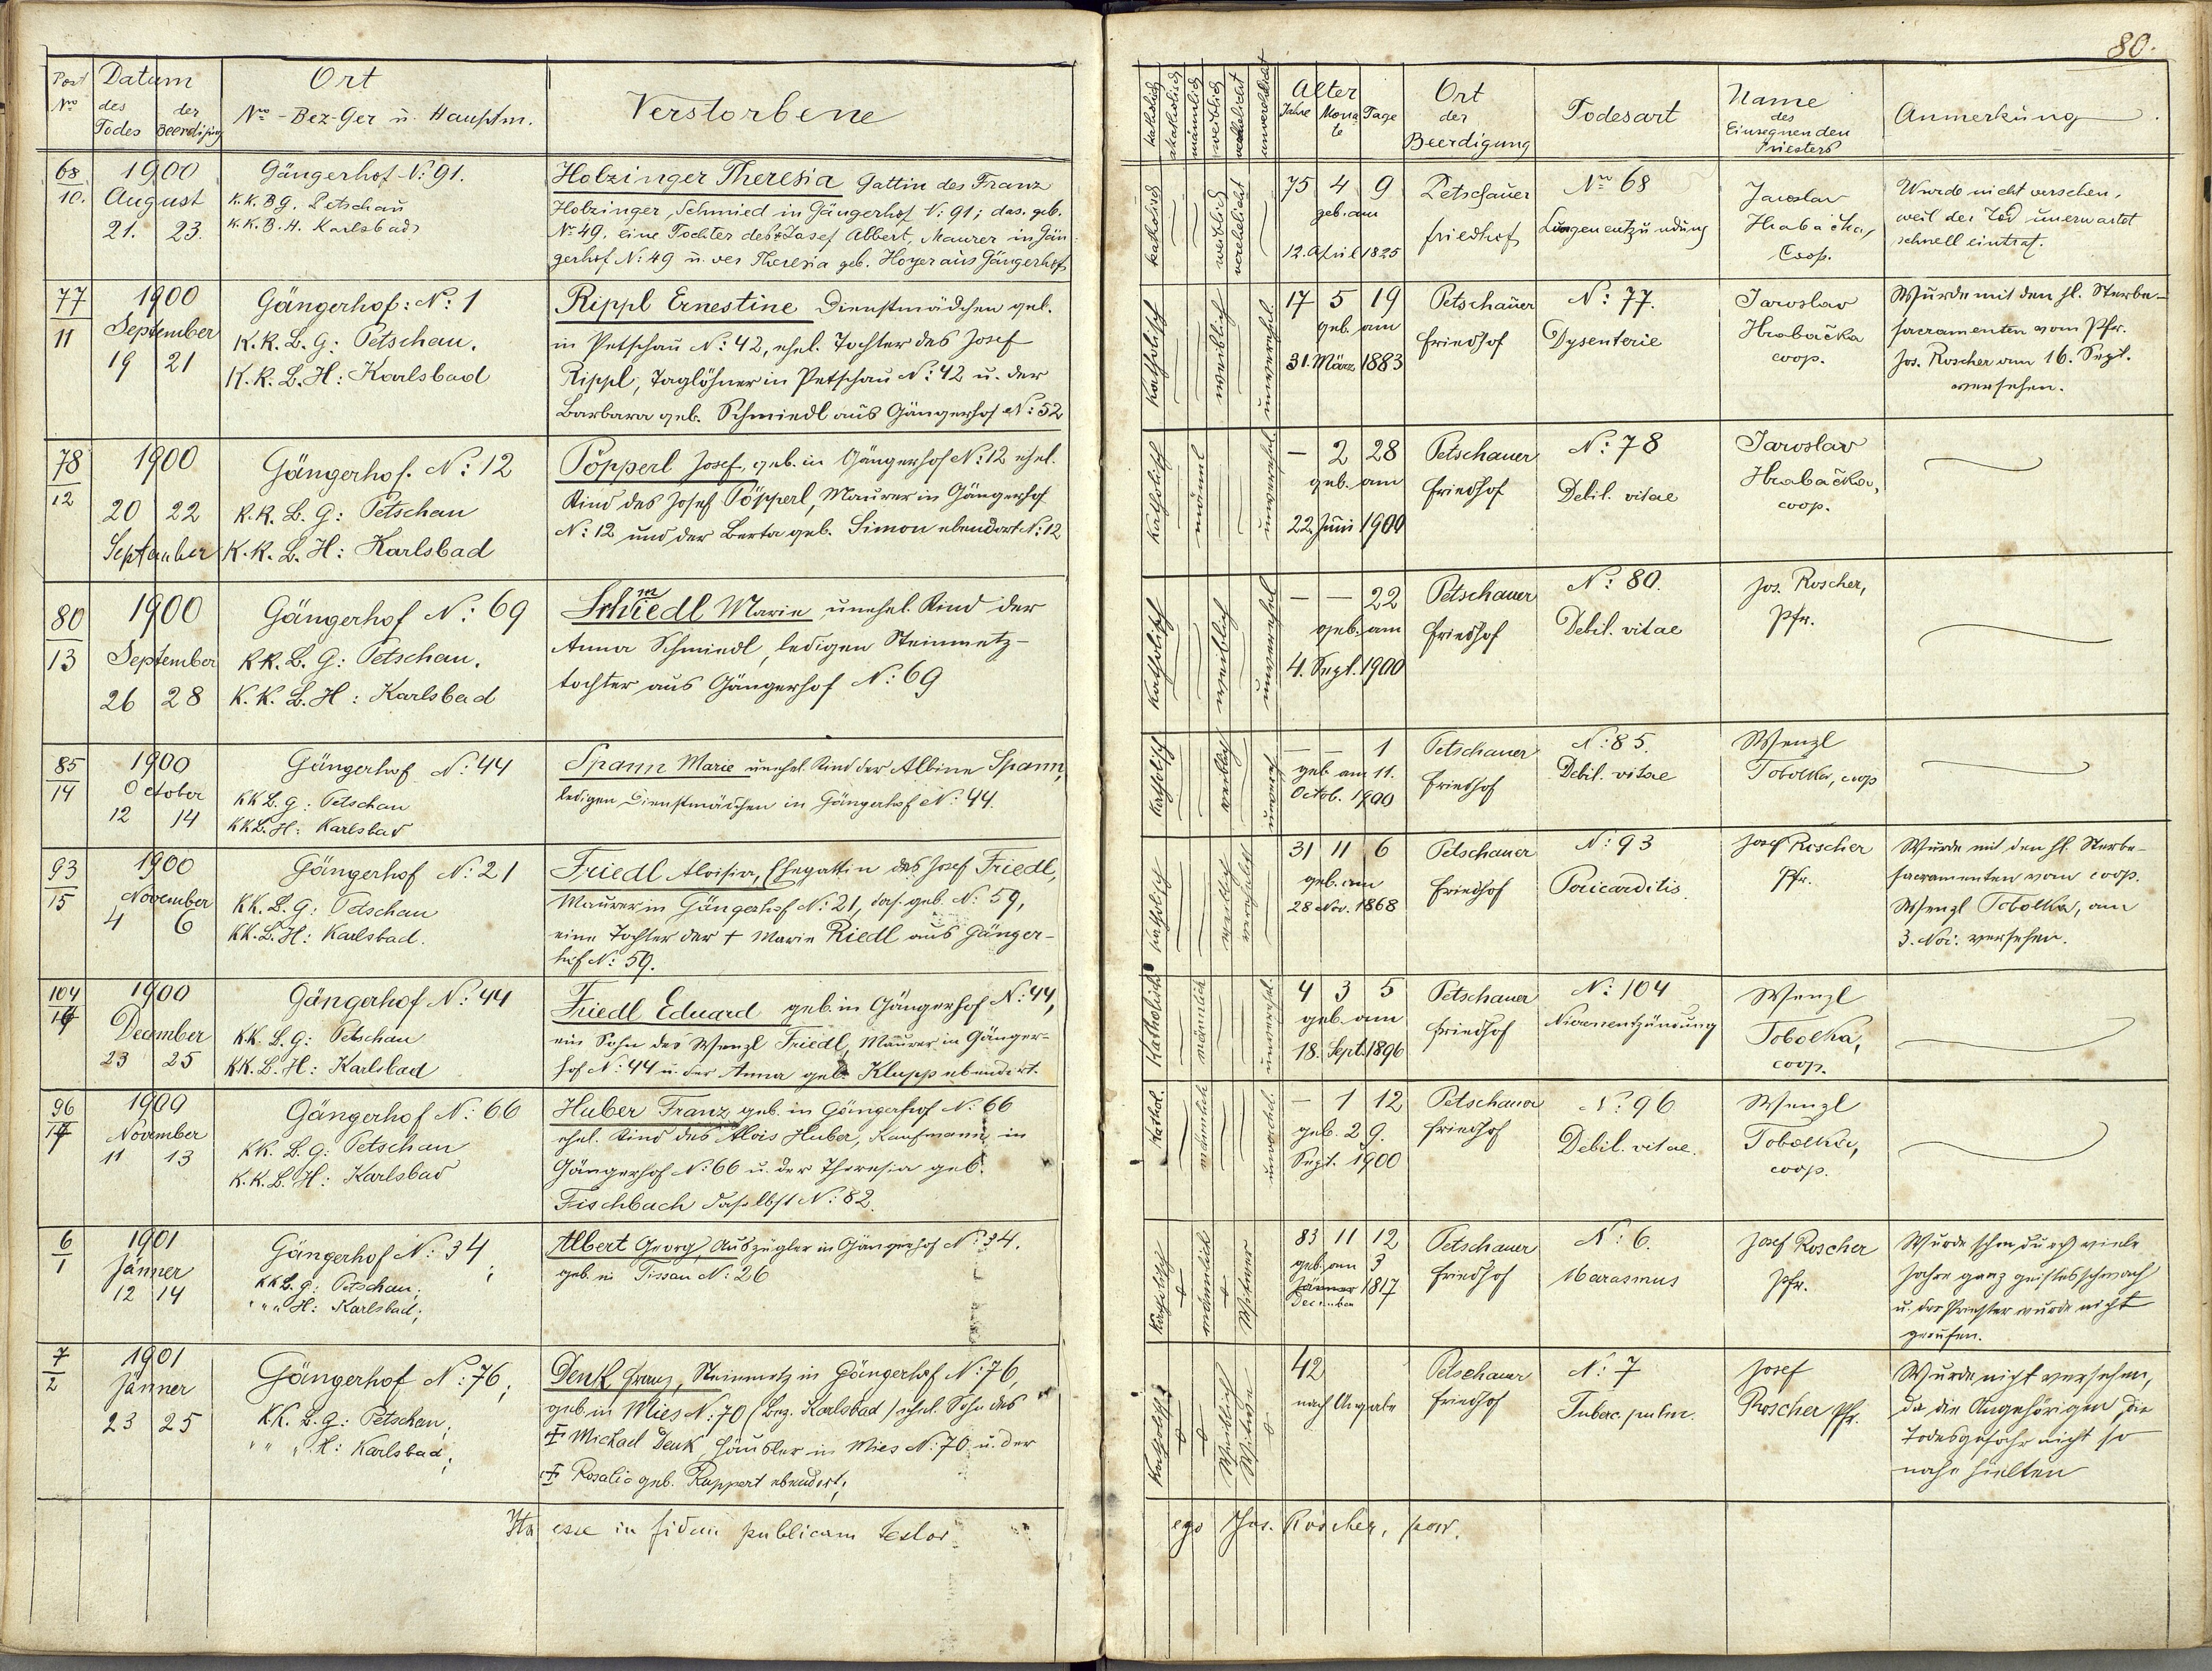 80.
Post Nro
Datum
des Todes
der Beerdigung
Ort
Nro - Bez-Ger u. Hauptm.
Verstorbene
katholisch
akatholisch
männlich
weiblich
verehelicht
unverehelicht
Alter
Jahre Monate Tage
Ort
der
Beerdigung
Todesart
Name
des
Einsegnenden
Priesters
Anmerkung
68
10.
1900
August
21. 23.
Gängerhof N: 91.
k.k. B.G. Petschau
k.k. B.H. Karlsbad
Holzinger Theresia Gattin des Franz
Holzinger, Schmied in Gängerhof N: 91; das. geb.
No 49, eine Tochter des † Josef Albert, Maurer in Gän-
gerhof N: 49 u. der Theresia geb. Hoyer aus Gängerhof
katholisch
weiblich
verehelicht
75 4 9
geb. am
12. April 1825
Petschauer
Friedhof
Nro 68
Lungenentzündung
Jaroslav
Hrabačka,
Coop.
Wurde nicht versehen,
weil der Tod unerwartet
schnell eintrat.
77
11
1900
September
19 21
Gängerhof: N: 1
K.K. B. G: Petschau.
K.K. B. H: Karlsbad
Rippl Ernestine Dienstmädchen geb.
in Petschau N: 42, ehel. Tochter des Josef
Rippl, Taglöhner in Petschau N: 42 u. der
Barbara geb. Schmiedl aus Gängerhof N: 52
Katholisch
weiblich
unverehel.
17 5 19
geb. am
31. März 1883
Petschauer
Friedhof
N: 77.
Dysenterie
Jaroslav
Hrabačka
coop.
Wurde mit den hl. Sterbe-
sacramenten vom Pfr.
Jos. Roscher am 16. Sept.
versehen.
78
12
1900
20 22
September
Gängerhof. N: 12
K.K. B. G: Petschau
K.K. B. H: Karlsbad
Pöpperl Josef, geb. in Gängerhof N: 12 ehel.
Kind des Josef Pöpperl, Maurer in Gängerhof
N: 12 und der Berta geb. Simon ebendort N: 12
Katholisch
männl
unverehel
— 2 28
geb. am
22. Juni 1900
Petschauer
Friedhof
N: 78
Debil. vitae
Jaroslav
Hrabačka,
coop.
80
13
1900
September
26 28
Gängerhof N: 69
K.K. B. G: Petschau.
K.K. B. H: Karlsbad
Schmiedl Marie, unehel. Kind der
Anna Schmiedl, ledigen Steinmetz-
tochter aus Gängerhof N: 69
Katholisch
weiblich
unverehel
— — 22
geb. am
4. Sept. 1900
Petschauer
Friedhof
N: 80.
Debil. vitae
Jos. Roscher,
Pfr.
85
14
1900
October
12 14
Gängerhof N: 44
KK B. G: Petschau
KK B. H: Karlsbad
Spann Marie unehel. Kind der Albine Spann,
ledigen Dienstmädchen in Gängerhof N: 44.
Katholisch
weiblich
unvereh
— — 1
geb. am 11.
Octob. 1900
Petschauer
Friedhof
N: 85.
Debil. vitae
Wenzl
Tobolka, coop
93
15
1900
November
4 6
Gängerhof N: 21
KK. B. G: Petschau
KK. B. H: Karlsbad.
Friedl Aloisia, Ehegattin des Josef Friedl,
Maurer in Gängerhof N: 21, das. geb. N: 59,
eine Tochter der † Marie Riedl aus Gänger-
hof N: 59.
katholisch
weiblich
verehelicht
31 11 6
geb. am
28 Nov. 1868
Petschauer
Friedhof
N: 93
Pericarditis.
Josef Roscher
Pfr.
Wurde mit den hl. Sterbe-
sacramenten vom coop.
Wenzl Tobolka, am
3. Nov. versehen.
104
16
1900
December
23 25
Gängerhof N: 44
KK. B. G: Petschau
KK. B. H: Karlsbad
Friedl Eduard geb. in Gängerhof N: 44,
ein Sohn des Wenzl Friedl, Maurer in Gänger-
hof N: 44 u. der Anna geb. Klupp ebendort.
Katholisch
männlich
unverehel.
4 3 5
geb. am
18. Sept. 1896
Petschauer
Friedhof
N: 104
Nierenentzündung
Wenzl
Tobolka,
coop.
96
17
1900
November
11 13
Gängerhof N: 66
KK. B. G: Petschau
K.K. B. H: Karlsbad
Huber Franz geb. in Gängerhof N: 66
ehel. Kind des Alois Huber, Kaufmann in
Gängerhof N: 66 u. der Theresia geb.
Fischbach daselbst N: 82.
Kathol.
männlich
unverehel.
— 1 12
geb. 29.
Sept. 1900
Petschauer
Friedhof
N: 96
Debil. vitae.
Wenzl
Tobolka,
coop.
6
1
1901
Jänner
12 14
Gängerhof N: 34;
KK B. G: Petschau;
" " " H: Karlsbad;
Albert Georg, Auszügler in Gängerhof N: 34.
geb. in Tissau N: 26
Katholisch
männlich
Witwer
83 11 12
geb. am 3
Jänner 1817
December
Petschauer
Friedhof
N: 6.
Marasmus
Josef Roscher
Pfr.
Wurde schon durch viele
Jahre ganz geistesschwach
u. der Priester wurde nicht
gerufen.
7
2
1901
Jänner
23 25
Gängerhof N: 76;
K.K. B. G: Petschau;
" " " H: Karlsbad;
Denk Franz, Steinmetz in Gängerhof N: 76,
geb. in Mies N: 70 (Bez. Karlsbad) ehel. Sohn des
† Michael Denk, Häusler in Mies N: 70 u. der
† Rosalie geb. Ruppert ebendort;
Katholisch
42
nach Angabe
Petschauer
Friedhof
N: 7
Tuberc. pulm.
Josef
Roscher Pfr.
Wurde nicht versehen,
da die Angehörigen die
Todesgefahr nicht so
nahe hielten
Ita esse in fidem publicam testor
ego Jos. Roscher, par.